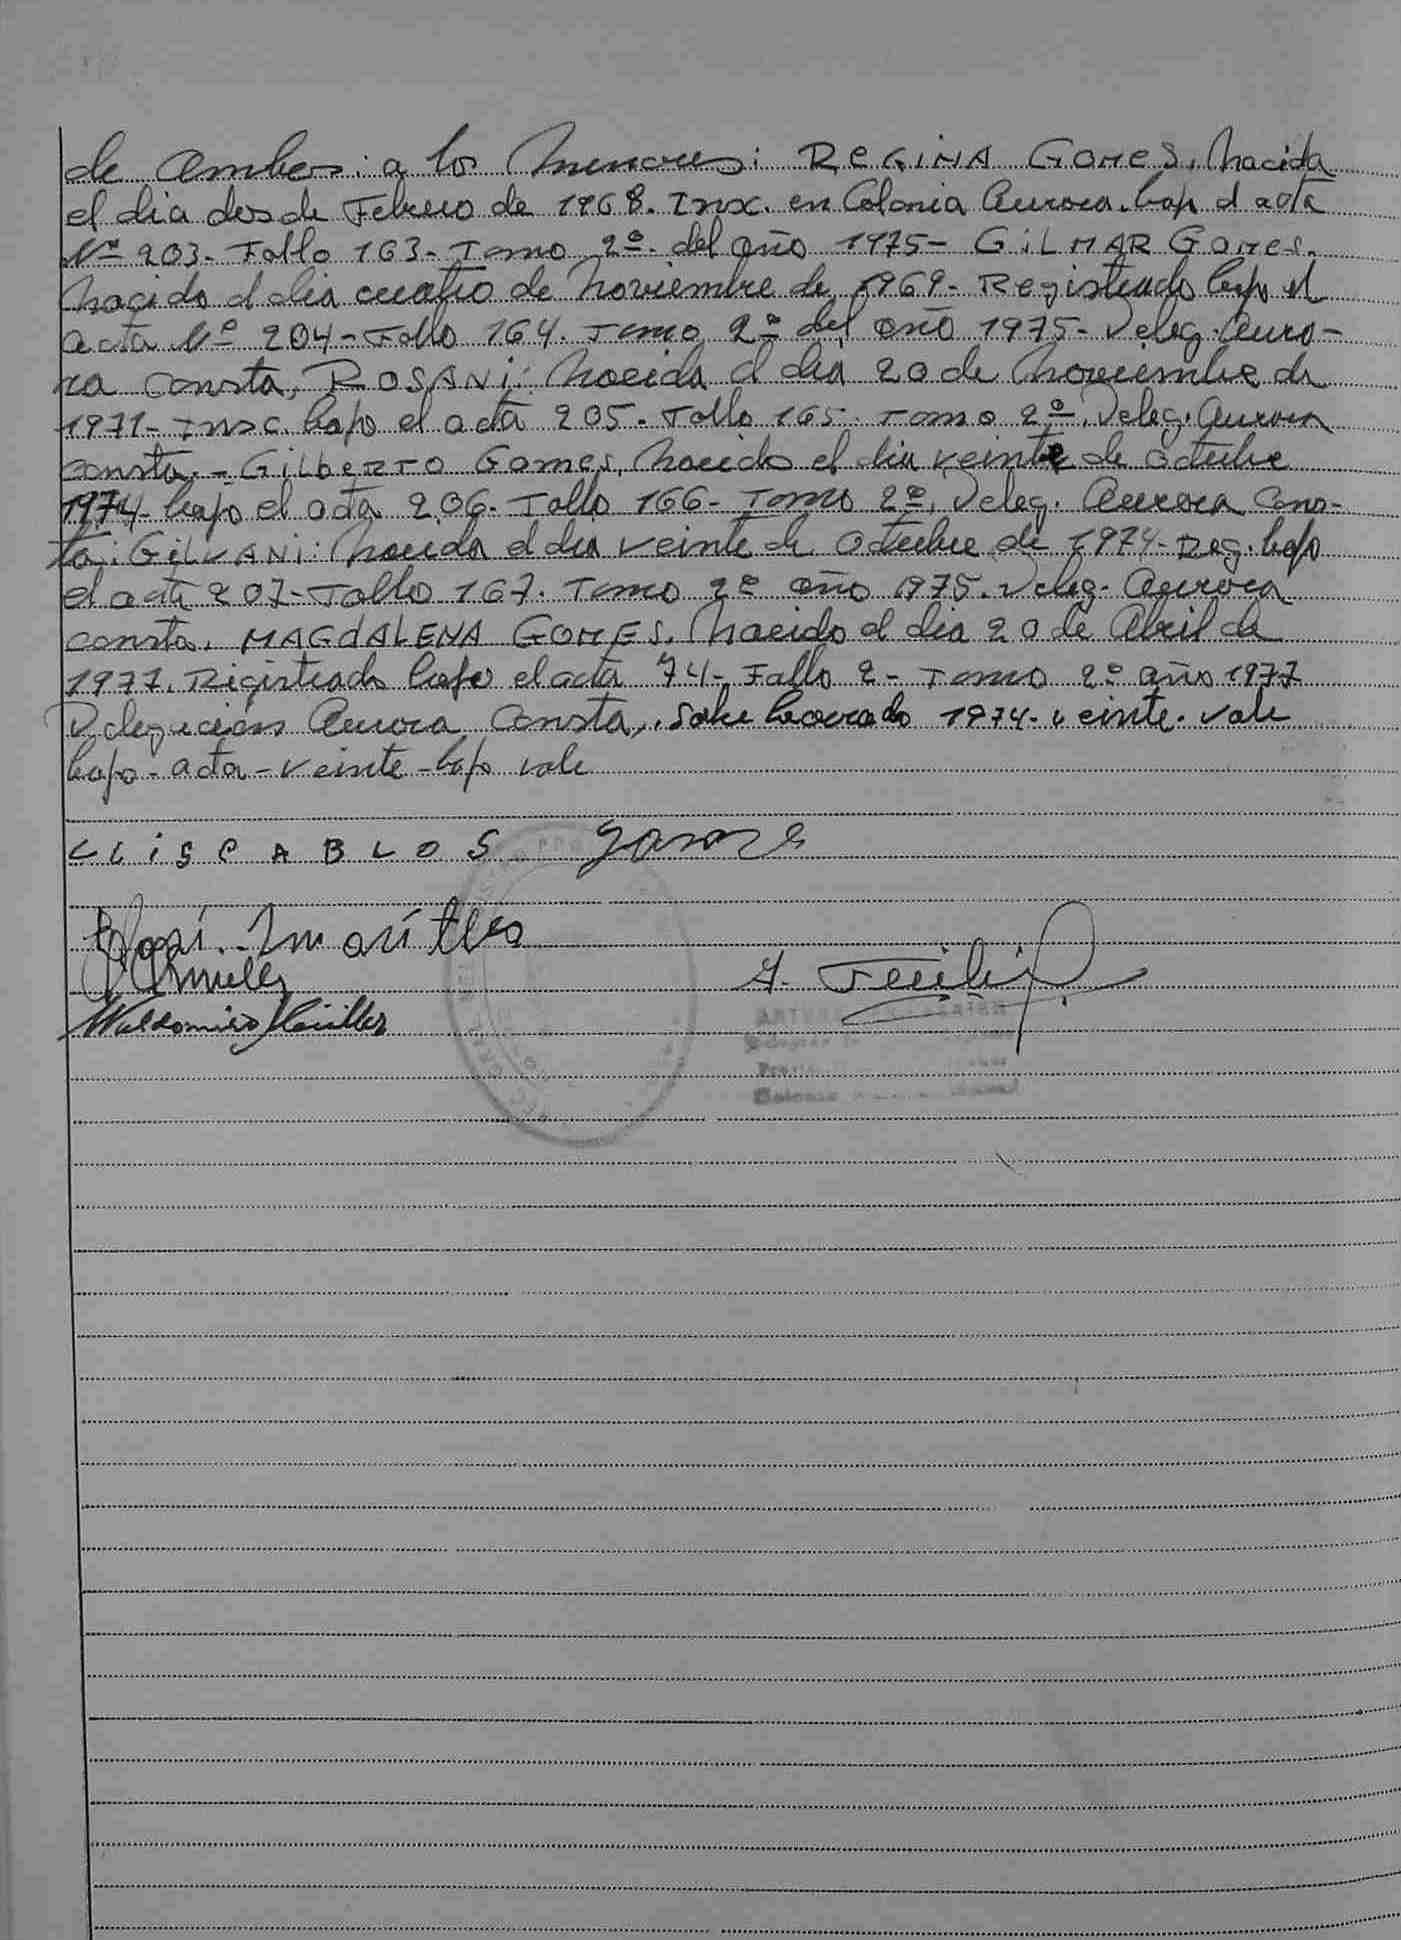 de ambos: a los menores: REGINA GOMES. Nacida
el dia dos de Febrero de 1968. Inx. en Colonia Aurora. bajo el acta
Nº 203. Follo 163- Tomo 2º. del año 1975- GILMAR GOMES.
Nacido el dia cuatro de Noviembre de 1969- Registrado bajo el
acta Nº 204- Follo 164. Tomo 2º del año 1975- Deleg. Auro-
ra Consta, ROSANI: Nacida el dia 20 de Noviembre de
1971- Insc. bajo el acta 205. Tollo 165. Tomo 2º. Deleg. Aurora
consta.- GILBERTO Gomes, Nacido el dia veinte de octubre
1974- bajo el acta 206- Tollo 166- Tomo 2º, Deleg. Aurora Cons-
ta: GILVANI: Nacida el dia veinte de Octubre de 1974- Reg. bajo
el acta 207- Tollo 167. Tomo 2º año 1975. Deleg. Aurora
consta. MAGdALENA GOMES. Nacido el dia 20 de Abril de
1977. Registrado bajo el acta 74- Follo 2- Tomo 2º año 1977
Delegacion Aurora Consta,. Sobre borrado 1974- veinte. vale
bajo- acta- veinte- bajo vale
LUIS CABLOS gomes
Waldomiro Müller